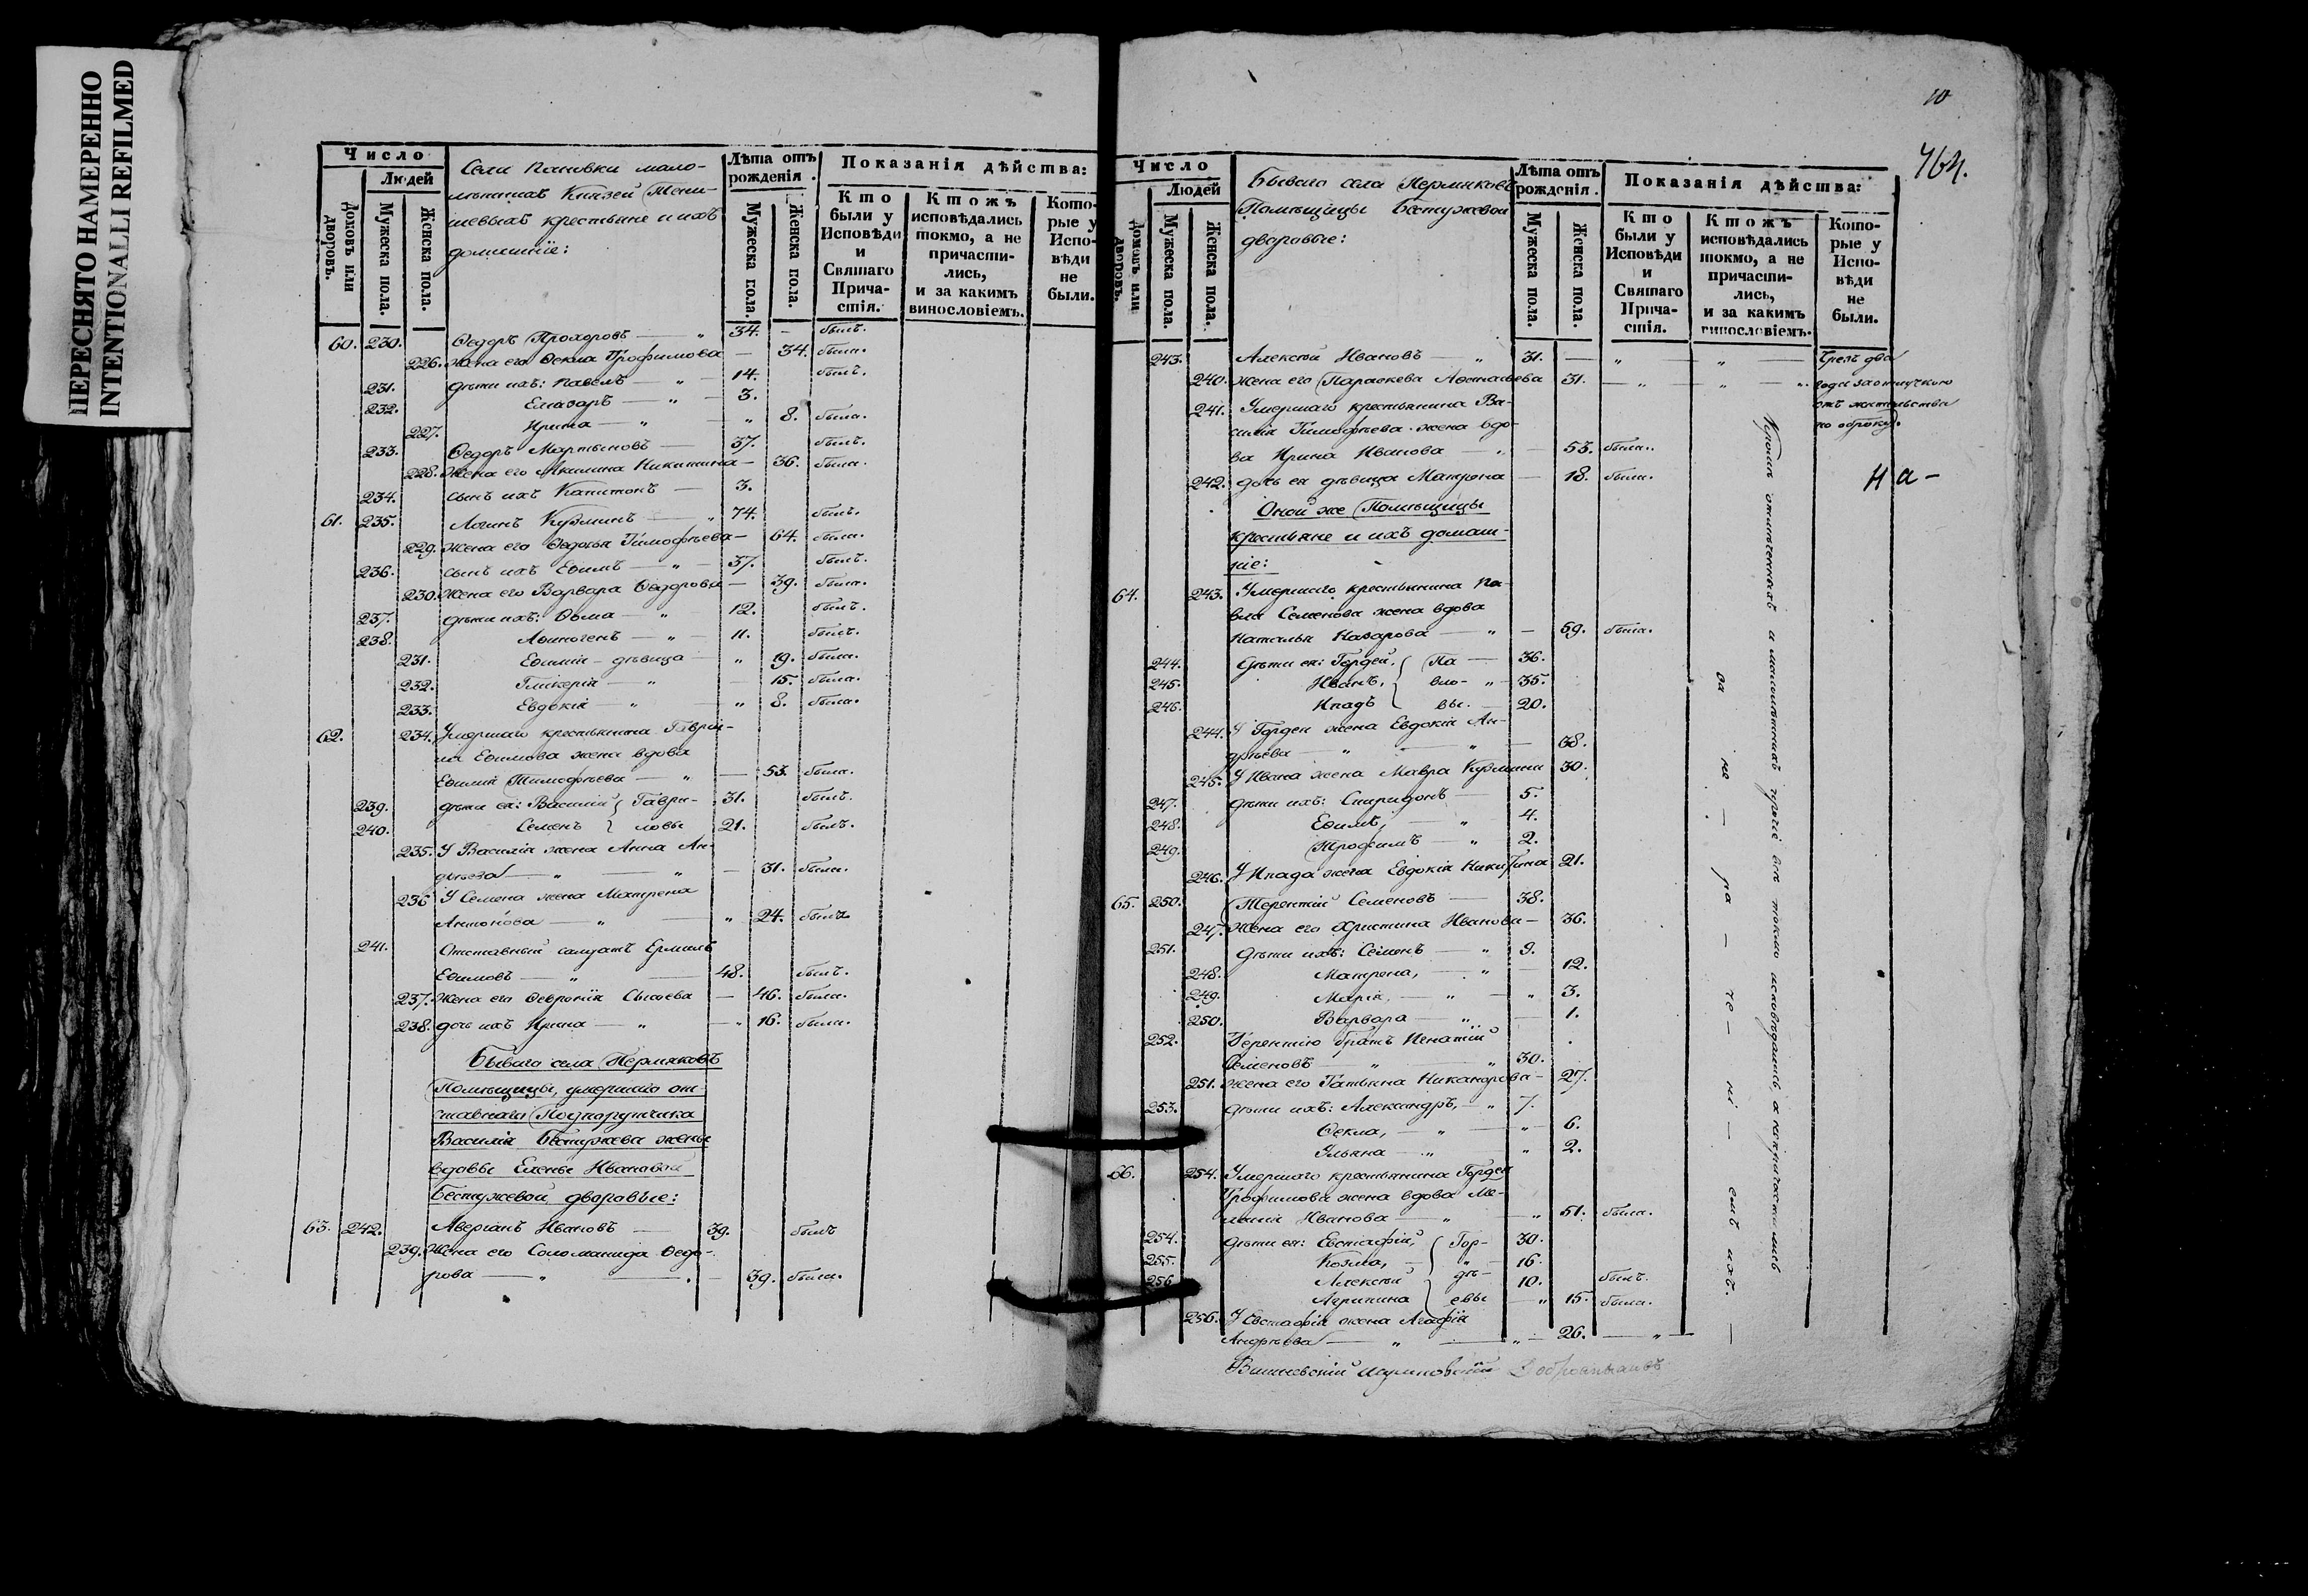 ПЕРЕСНЯТО НАМЕРЕННО
INTENTIONALLI REFILMED
Число
Людей
Домовъ или дворовъ.
Мужеска пола.
Женска пола.
Села Пановки мало-
лѣтныхъ Князей Тени-
шевыхъ крестьяне и ихъ
домашніе:
Лѣта отъ рожденія.
Мужеска пола.
Женска пола.
Показанія дѣйства:
Кто были у Исповѣди и Святаго Прича-стія.
Ктожъ исповѣдались токмо, а не причасти-лись, и за какимъ винословіемъ.
Кото-рые у Испо-вѣди не были.
60. 230. Ѳедоръ Прохоровъ — „ 34. — былъ.
226. Жена его Ѳекла Трофимова — 34. была.
231. Дѣти ихъ: Павелъ — „ — 14. былъ.
232. Елизаръ — „ — 3.
227. Ирина — „ — „ 8. была.
233. Ѳедоръ Мартыновъ — 37. былъ.
228. Жена его Акилина Никитина — 36. была.
234. сынъ ихъ Капитонъ — 3.
61. 235. Логинъ Кузминъ — „ 74. былъ.
229. Жена его Ѳедосья Тимофѣева — 64. была.
236. сынъ ихъ Ефимъ — „ — 37. былъ.
230. Жена его Варвара Ѳедорова — 39. была.
237. дѣти ихъ: Ѳома — „ 12. былъ.
238. Афиногенъ — „ — 11. былъ.
231. Ефимія — дѣвица — „ 19. была.
232. Гликерія — „ — 15. была.
233. Евдокія — „ „ 8. была.
62. 234. Умершаго крестьянина Гаври-
ла Ефимова жена вдова
Ефимія Тимофѣева — „ — 53. была.
239. дѣти ея: Василій } Гаври- 31. былъ.
240. Семенъ } ловы 21. былъ.
235. У Василія жена Анна Ан-
дрѣева — „ — „ — 31. была.
236 У Семена жена Матрена
Антонова — „ — „ 24. была
241. Отставный салдатъ Ермилъ
Ефимовъ — „ — 48. былъ.
237. Жена его Февронія Сысоева — 46. была.
238. дочь ихъ Ирина — „ — „ 16. была.
Бываго села Пермяковъ
Помѣщицы, умершаго от-
ставнаго Подпоручика
Василія Бестужева жены
вдовы Елены Ивановой
Бестужевой дворовые:
63. 242. Аверіанъ Ивановъ — 39. былъ
239. Жена его Соломанида Ѳедо-
рова — „ — 39. была.
10
464.
Число
Людей
Домовъ или дворовъ.
Мужеска пола.
Женска пола.
Бываго села Пермяковъ
Помѣщицы Бестужевой
дворовые:
Лѣта отъ рожденія.
Мужеска пола.
Женска пола.
Показанія дѣйства:
Кто были у Исповѣди и Святаго Прича-стія.
Ктожъ исповѣдались токмо, а не причасти-лись, и за какимъ винословіемъ.
Кото-рые у Испо-вѣди не были.
243. Алексѣй Ивановъ — „ 31. — „ — „ — Чрезъ два
240. Жена его Параскева Афонасьева 31. — „ — „ — „ года за отлучкою
отъ жительства
по оброку.
241. Умершаго крестьянина Ва-
силія Тимофѣева жена вдо-
ва Ирина Иванова — „ — 53. была.
242. дочь ея дѣвица Матрена — 18. была.
На-
Оной же Помѣщицы
крестьяне и ихъ домаш-
ніе:
64. 243. Умершаго крестьянина Па-
вла Семенова жена вдова
Наталья Назарова — „ — 59. была.
244. Дѣти ея: Гордей, { Па — 36.
245. Иванъ, { вло- „ — 35.
246. Ипадъ { вы. — 20.
244. У Гордея жена Евдокія Ан-
дрѣева — „ — „ — 38.
245. У Ивана жена Мавра Кузмина 30.
247. дѣти ихъ: Спиридонъ — 5.
248. Ефимъ, — „ 4.
249. Трофимъ — „ 2.
246. У Ипада жена Евдокія Никитина 21.
65. 250. Терентій Семеновъ — 38.
247. Жена его Христина Иванова — 36.
251. Дѣти ихъ: Семенъ — „ 9.
248. Матрена, — „ — 12.
249. Марія, — „ — „ 3.
250. Варвара — „ — 1.
252. Терентію братъ Игнатій
Семеновъ — „ — „ 30.
251. Жена его Татьяна Никанорова — 27.
253. дѣти ихъ: Александръ, — „ 7.
Ѳекла, — „ — „ 6.
Ульяна — „ „ 2.
66. 254. Умершаго крестьянина Гордея
Трофимова жена вдова Ме-
ланія Иванова — „ — „ 51. была.
254. Дѣти ея: Евстафій, { Гор- 30.
255. Козма, — { „ — 16.
256 Алексѣй { дѣ- 10. былъ.
Агрипина { евы — „ 15. была.
256. У Евстафія жена Агафія
Андрѣева — „ — „ — 26. — „ —
Кромѣ отмѣченныхъ и малолѣтнихъ прочіе всѣ токмо исповѣдались а не причастились
за не — ра — че — ні — емъ ихъ. —